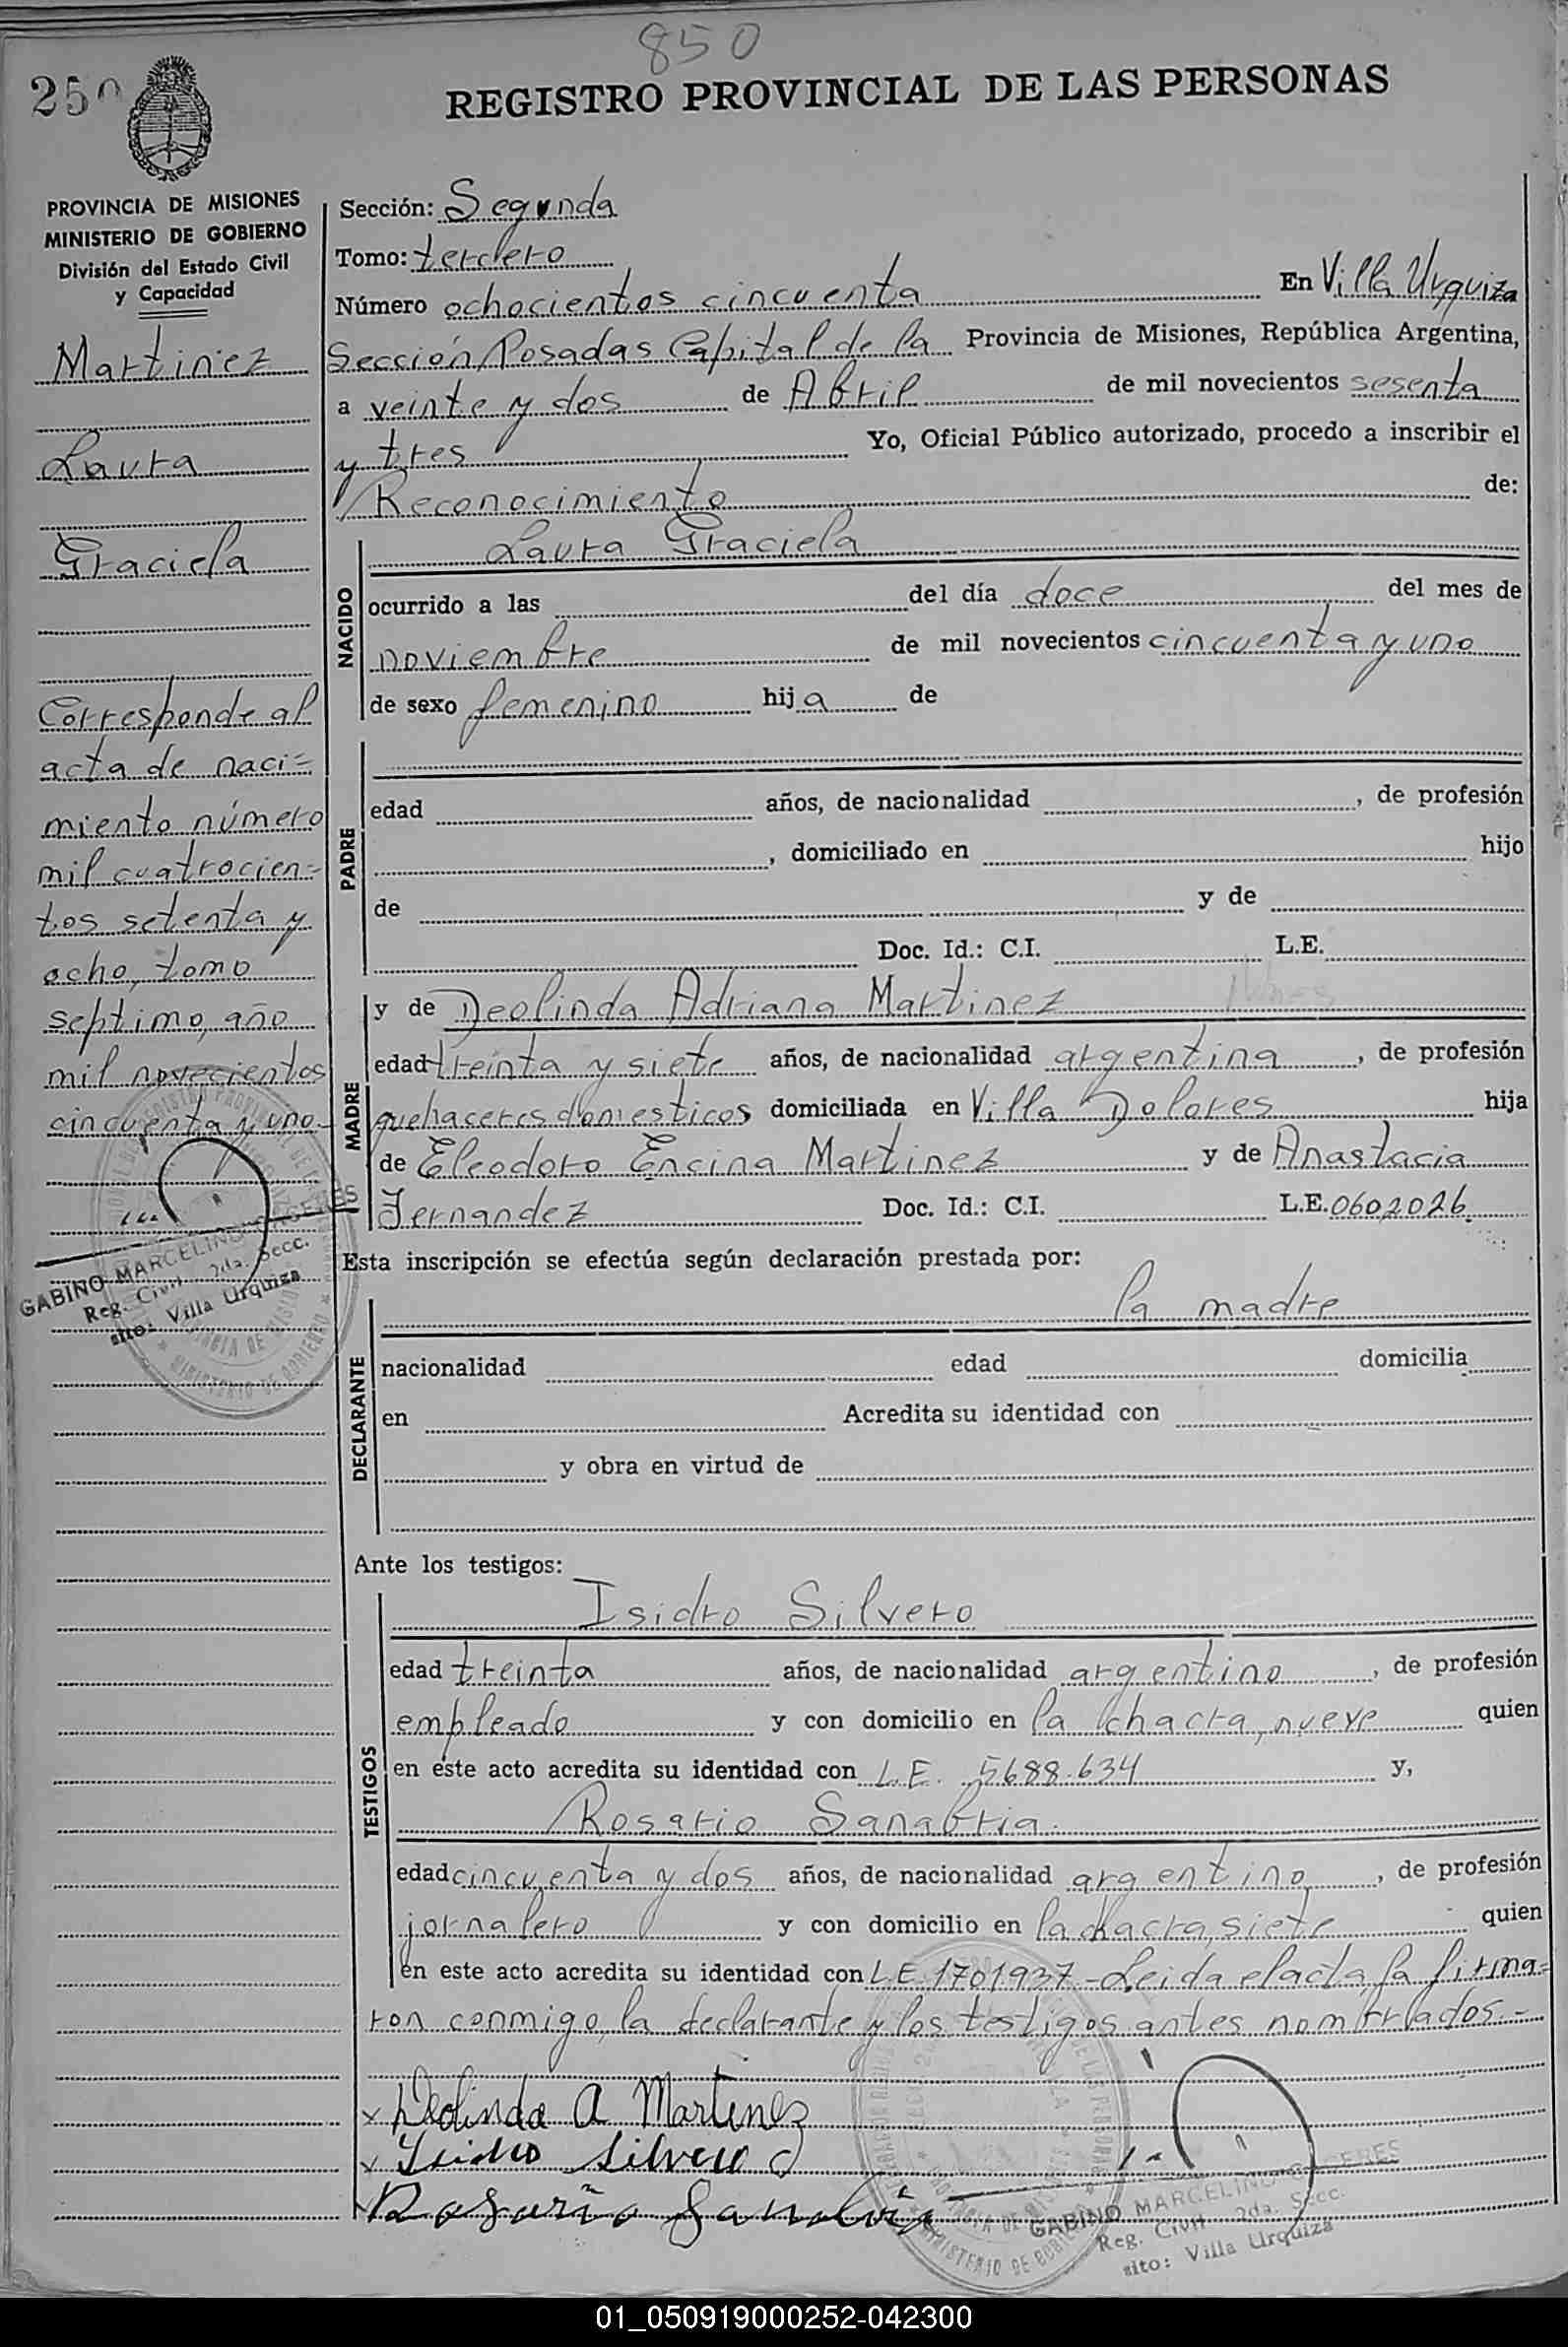 850
250
REGISTRO PROVINCIAL DE LAS PERSONAS
PROVINCIA DE MISIONES
MINISTERIO DE GOBIERNO
División del Estado Civil
y Capacidad
Martinez
Laura
Graciela
Corresponde al
acta de naci=
miento número
mil cuatrocien=
tos setenta y
ocho, tomo
septimo, año
mil novecientos
cincuenta y uno.-
GABINO MARCELINO
Reg. Civil 2da. Secc.
sito: Villa Urquiza
Sección: Segunda
Tomo: tercero
Número ochocientos cincuenta En Villa Urquiza
Sección Posadas Capital de la Provincia de Misiones, República Argentina,
a veinte y dos de Abril de mil novecientos sesenta
y tres Yo, Oficial Público autorizado, procedo a inscribir el
Reconocimiento de:
NACIDO
Laura Graciela
ocurrido a las del día doce del mes de
noviembre de mil novecientos cincuenta y uno
de sexo femenino hija de
PADRE
edad años, de nacionalidad , de profesión
, domiciliado en hijo
de y de
Doc. Id.: C.I. L.E.
MADRE
y de Deolinda Adriana Martinez
edad treinta y siete años, de nacionalidad argentina , de profesión
quehaceres domesticos domiciliada en Villa Dolores hija
de Eleodoro Encina Martinez y de Anastacia
Fernandez Doc. Id.: C.I. L.E. 0602026.
Esta inscripción se efectúa según declaración prestada por:
DECLARANTE
la madre
nacionalidad edad domicilia
en Acredita su identidad con
y obra en virtud de
Ante los testigos:
TESTIGOS
Isidro Silvero
edad treinta años, de nacionalidad argentino , de profesión
empleado y con domicilio en la chacra, nueve quien
en este acto acredita su identidad con L.E. 5688.634 y,
Rosario Sanabria.
edad cincuenta y dos años, de nacionalidad argentino , de profesión
jornalero y con domicilio en la chacra, siete quien
en este acto acredita su identidad con L.E. 1701937.- Leida el acta, la firma=
ron conmigo, la declarante y los testigos antes nombrados.-
x Deolinda A Martinez
x Isidro Silvero
x Rosario Sanabria
GABINO MARCELINO
Reg. Civil 2da. Secc.
sito: Villa Urquiza
01_050919000252-042300